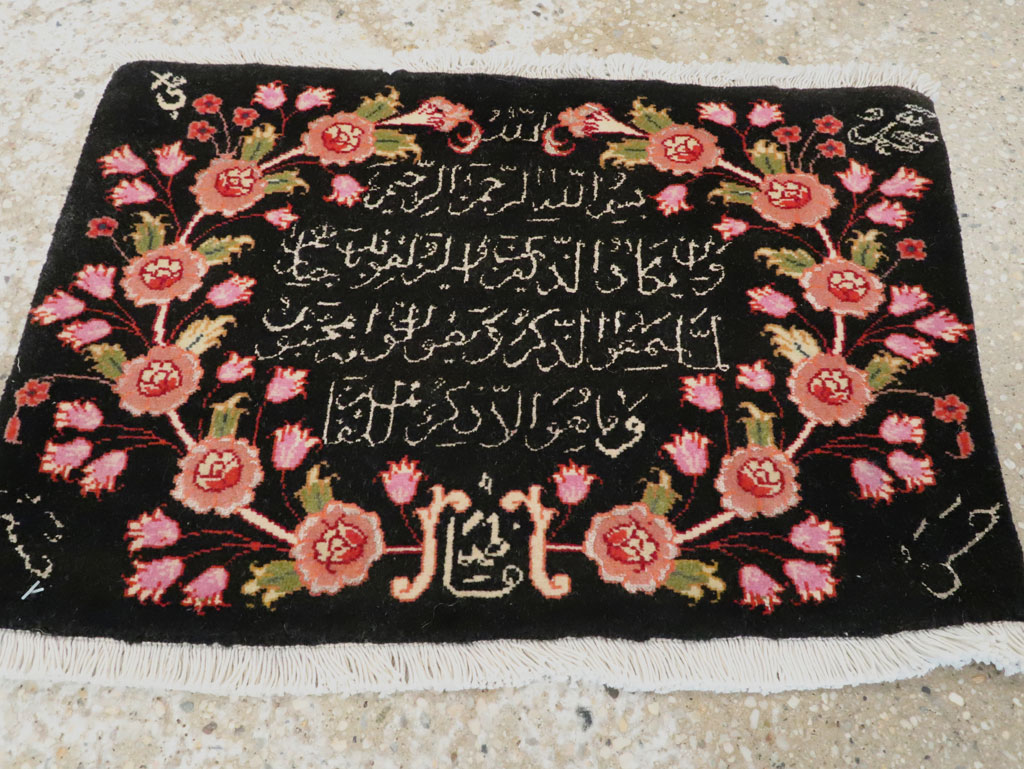 الله
بسم الله الرحمن الرحيم
وان يكاد الذين كفروا ليزلقونك بابصارهم
لما سمعوا الذكر ويقولون انه لمجنون
وما هو الا ذكر للعالمين